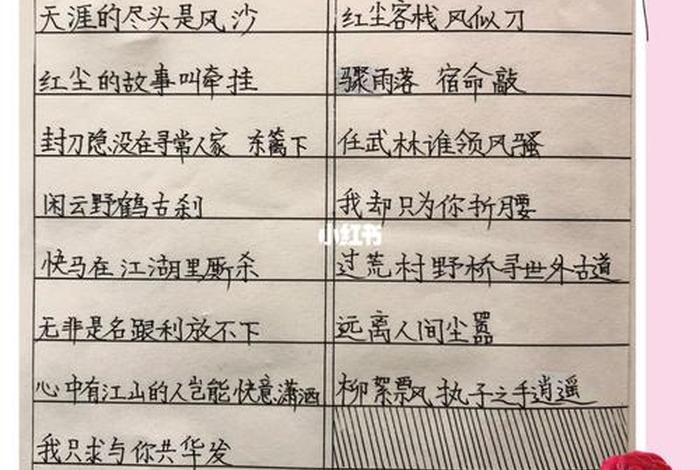 天涯的尽头是风沙
红尘的故事叫牵挂
封刀隐没在寻常人家 东篱下
闲云野鹤古刹
快马在江湖里厮杀
无非是名跟利放不下
心中有江山的人岂能快意潇洒
我只求与你共华发
红尘客栈风似刀
骤雨落 宿命敲
任武林谁领风骚
我却只为你折腰
过荒村野桥寻世外古道
远离人间尘嚣
柳絮飘风执子之手逍遥
小红书